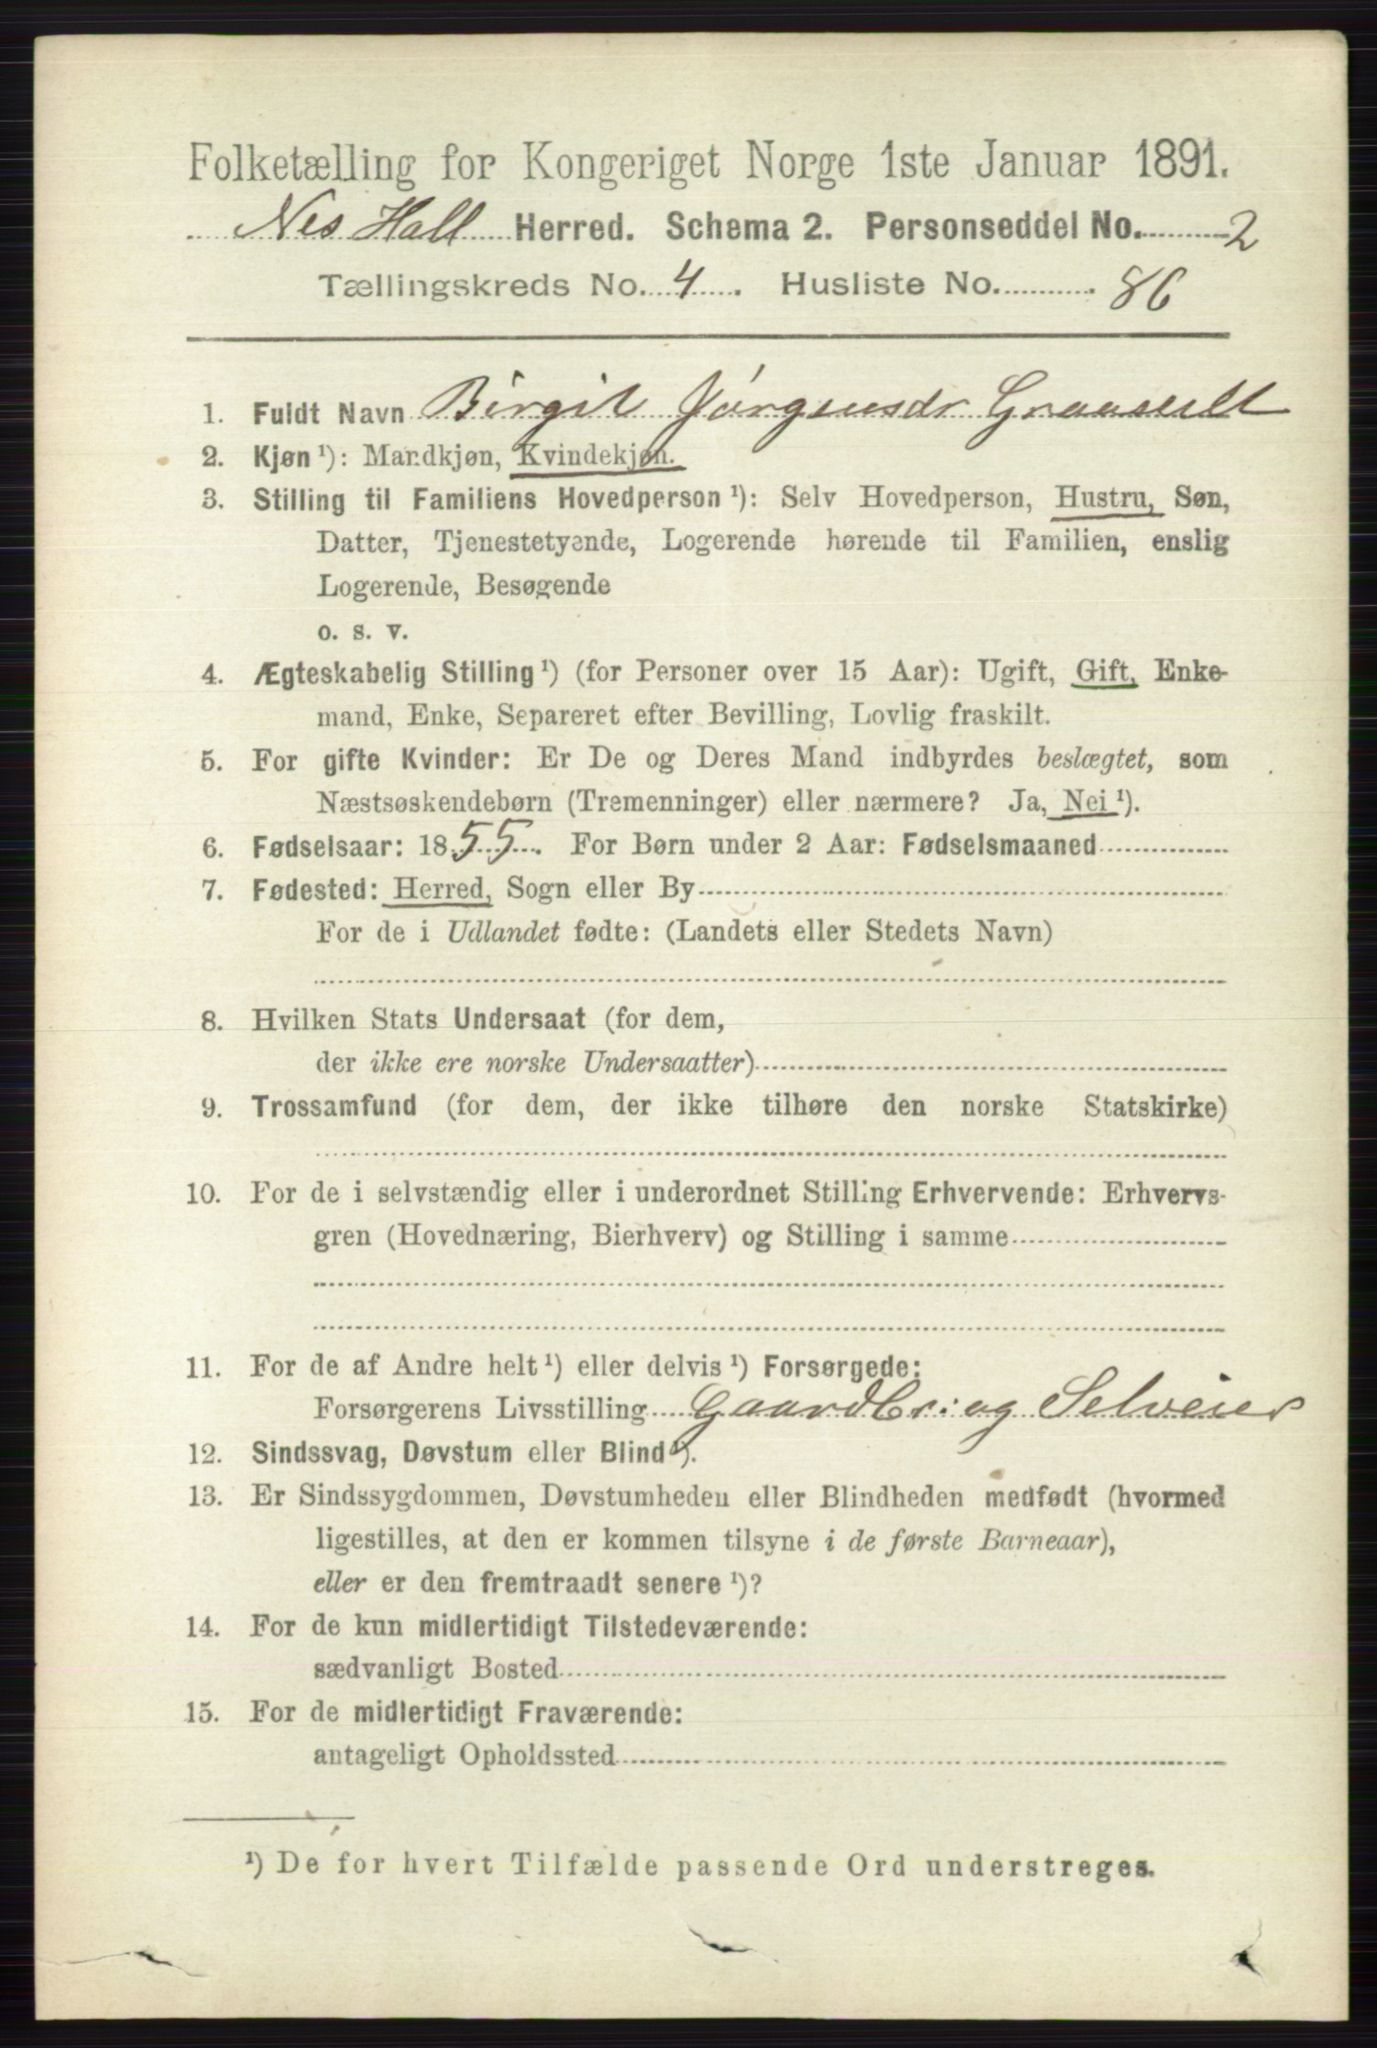 Folketælling for Kongeriget Norge 1ste Januar 1891.
Nes Hall Herred. Schema 2. Personseddel No. 2
Tællingskreds No. 4. Husliste No. 86
1. Fuldt Navn Birgit Jørgensdr
2. Kjøn ¹): Mandkjøn, Kvindekjøn.
3. Stilling til Familiens Hovedperson ¹): Selv Hovedperson, Hustru, Søn,
Datter, Tjenestetyende, Logerende hørende til Familien, enslig
Logerende, Besøgende
o. s. v.
4. Ægteskabelig Stilling ¹) (for Personer over 15 Aar): Ugift, Gift, Enke-
mand, Enke, Separeret efter Bevilling, Lovlig fraskilt.
5. For gifte Kvinder: Er De og Deres Mand indbyrdes beslægtet, som
Næstsøskendebørn (Tremenninger) eller nærmere? Ja, Nei ¹).
6. Fødselsaar: 1855. For Børn under 2 Aar: Fødselsmaaned
7. Fødested: Herred, Sogn eller By
For de i Udlandet fødte: (Landets eller Stedets Navn)
8. Hvilken Stats Undersaat (for dem,
der ikke ere norske Undersaatter)
9. Trossamfund (for dem, der ikke tilhøre den norske Statskirke)
10. For de i selvstændig eller i underordnet Stilling Erhvervende: Erhvervs-
gren (Hovednæring, Bierhverv) og Stilling i samme
11. For de af Andre helt ¹) eller delvis ¹) Forsørgede:
Forsørgerens Livsstilling Gaardbr: og Selveier
12. Sindssvag, Døvstum eller Blind ¹).
13. Er Sindssygdommen, Døvstumheden eller Blindheden medfødt (hvormed
ligestilles, at den er kommen tilsyne i de første Barneaar),
eller er den fremtraadt senere ¹)?
14. For de kun midlertidigt Tilstedeværende:
sædvanligt Bosted
15. For de midlertidigt Fraværende:
antageligt Opholdssted
¹) De for hvert Tilfælde passende Ord understreges.